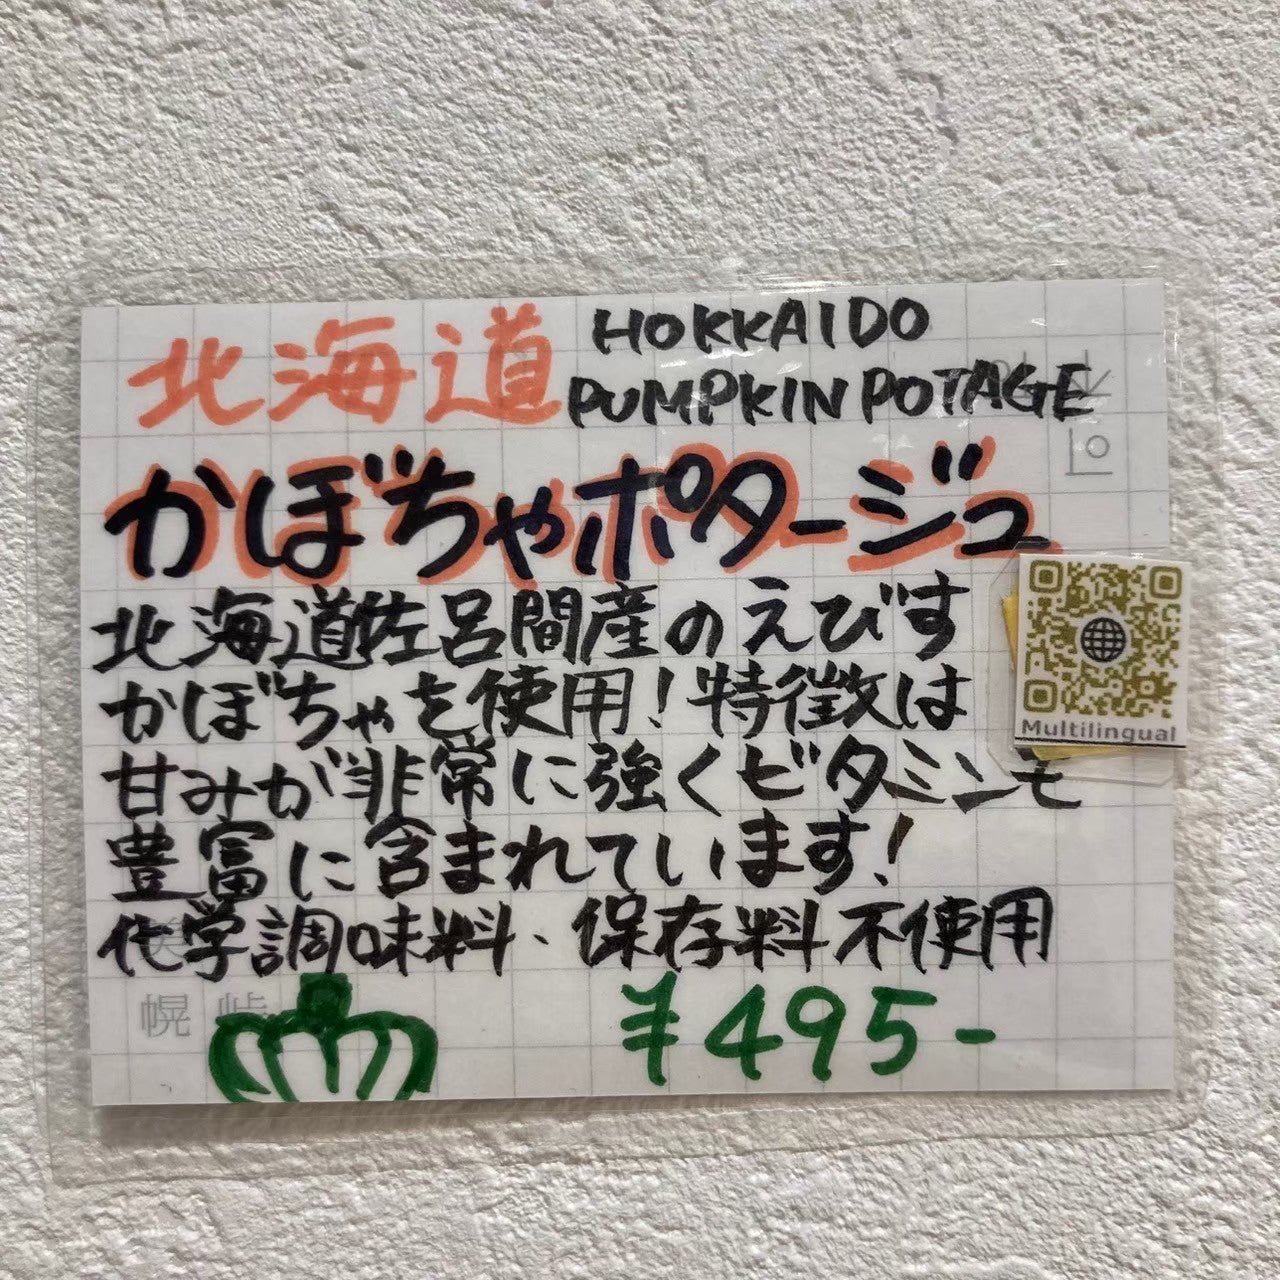 北海道
HOKKAIDO
PUMPKIN POTAGE
かぼちゃポタージュ
北海道佐呂間産のえびす
かぼちゃを使用！特徴は
甘みが非常に強くビタミンも
豊富に含まれています！
化学調味料、保存料不使用
¥495-
Multilingual